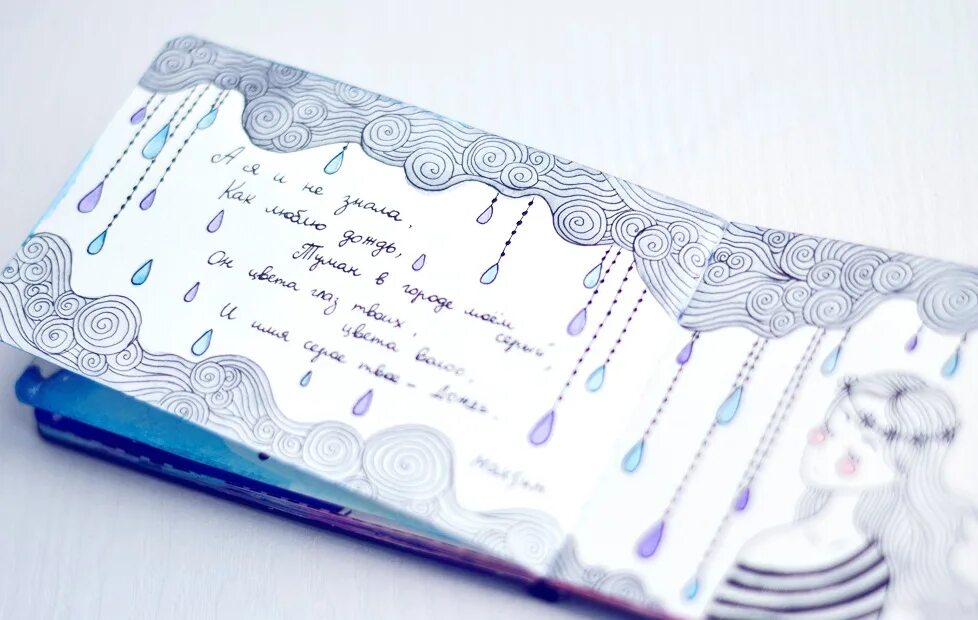 А я и не знала,
Как люблю дождь,
Туман в городе моём серый,
Он цвета глаз твоих, цвета волос,
И имя серое твое – Дождь.
МакSим